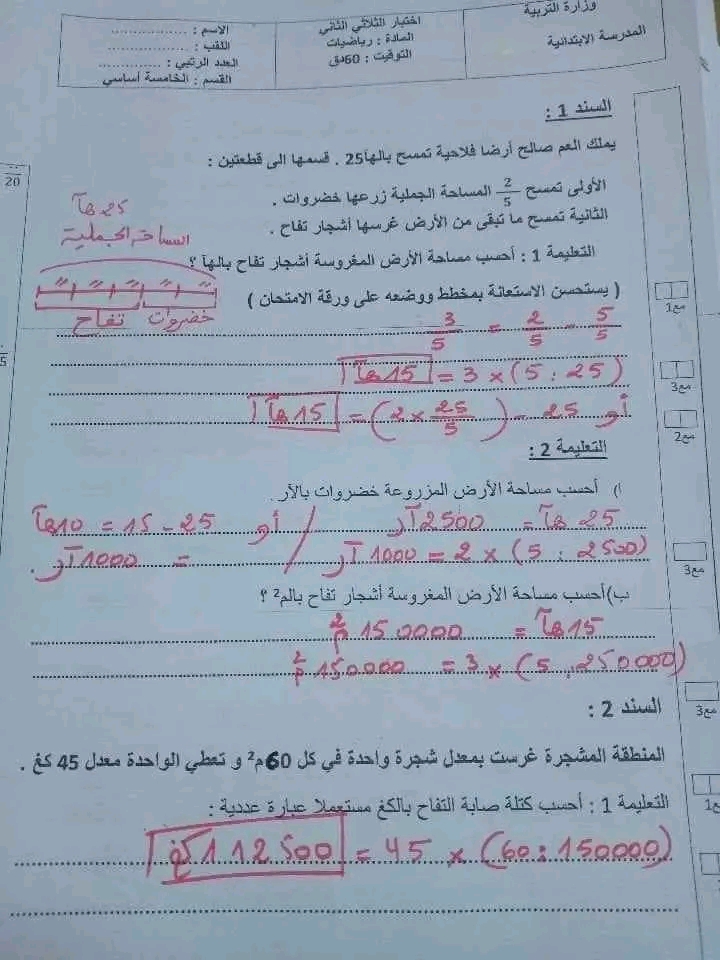 وزارة التربية
المدرسة الابتدائية
اختبار الثلاثي الثاني
المادة : رياضيات
التوقيت : 60دق
الاسم : ................
اللقب : ................
العدد الرتبي : ................
القسم : الخامسة أساسي
20
السند 1 :
يملك العم صالح أرضا فلاحية تمسح بالهآ25 . قسمها الى قطعتين :
الأولى تمسح 2/5 المساحة الجملية زرعها خضروات .
الثانية تمسح ما تبقى من الأرض غرسها أشجار تفاح .
25 هآ
المساحة الجملية
خضروات تفاح
التعليمة 1 : أحسب مساحة الأرض المغروسة أشجار تفاح بالهآ ؟
( يستحسن الاستعانة بمخطط ووضعه على ورقة الامتحان )
مع1
5/5 - 2/5 = 3/5
(25 : 5) × 3 = 15هآ
مع3
أو 25 - (25/5 × 2) = 15هآ
مع2
التعليمة 2 :
ا) أحسب مساحة الأرض المزروعة خضروات بالآر.
25 هآ = 2500آر / أو 25 - 15 = 10هآ
(2500 : 5) × 2 = 1000 آر / = 1000آر.
مع3
ب)أحسب مساحة الأرض المغروسة أشجار تفاح بالم² ؟
15هآ = 150000 م²
(250000 : 5) × 3 = 150000 م²
مع3
السند 2 :
المنطقة المشجرة غرست بمعدل شجرة واحدة في كل 60م² و تعطي الواحدة معدل 45 كغ .
التعليمة 1 : أحسب كتلة صابة التفاح بالكغ مستعملا عبارة عددية :
مع1
(150000 : 60) × 45 = 112500كغ